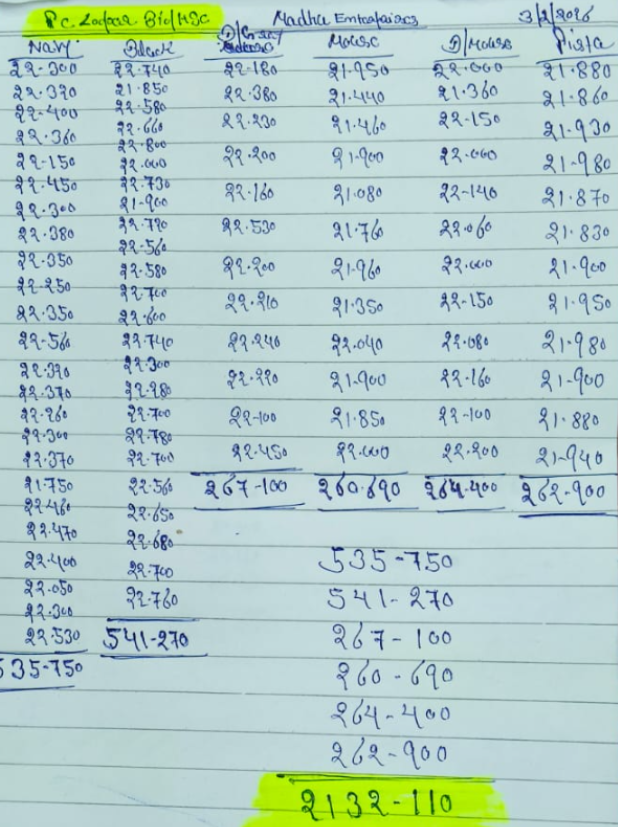 P.C. Zodpar Bid/HSC Madhu Enterprises 3/2/2026
Navy Black D/Grey Mouse D/Mouse Pista
22-300 22.740 22-180 21.950 22.000 21.880
22.320 21.850 22.380 21.440 21.360 21.860
22-400 22.580 22-230 21.460 22-150 21.930
22.360 22.660 22.200 21-900 22.000 21-980
22-150 22.800 22.160 21.080 22-140 21.870
22-450 22.000 22.530 21.760 22.060 21.830
22.300 22.730 22.200 21.960 22.000 21.900
22.380 21-900 22.210 21.350 22-150 21.950
22-350 22.720 22.240 22.040 22.080 21.980
22-250 22-560 22.220 21.900 22-160 21-900
22.350 22.580 22-100 21.850 22-100 21.880
22-560 22.700 22.450 22.000 22.200 21-940
22.320 22.600 267-100 260.690 264-400 262-900
22.370 22.740
22-260 22.300
22-300 22.280
22.370 22.700
21-750 22.780
22-460 22.700
22.470 22.560
22-400 22.650
22.050 22.680
22.300 22.700
22.530 22.760
535-750 541-270
535-750
541-270
267-100
260-690
264-400
262-900
2132-110